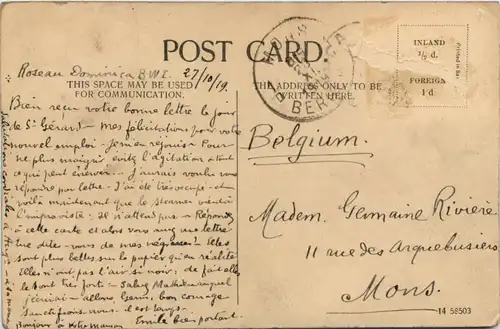 POST CARD
Roseau Dominica B.W.I. 27/10/19
THIS SPACE MAY BE USED
FOR COMMUNICATION.
THE ADDRESS ONLY TO BE
WRITTEN HERE.
INLAND
½ d.
FOREIGN
1'd
Printed in
Bien reçu votre bonne lettre le jour
de St Gérard - Mes félicitations pour votre
nouvel emploi - Jem'en rejouis - Pour
ne plus maigrir évitez l'agitation et tout
ce qui peut énerver. J'aurais voulu vous
répondre par lettre. J'ai été très occupé et
voilà maintenant que le steamer vient à
l'improviste: Il n'attend pas - Répondez
à cette carte et alors vous aurez une lettre
Que dites-vous de mes négresses! Elles
sont plus belles sur le papier qu'en réalité
Elles n'ont pas l'air si noir: de fait elles
le sont très fort - Saluez
j'écrivai - allons Germ. bon courage
Sanctifions nous. il est temps.
Bonjour à votre Maman Emile bien portant.
félicitations cordiales à
Belgium.
Madem. Germaine Rivière
11 rue des Arquebusiers
Mons.
14 58503